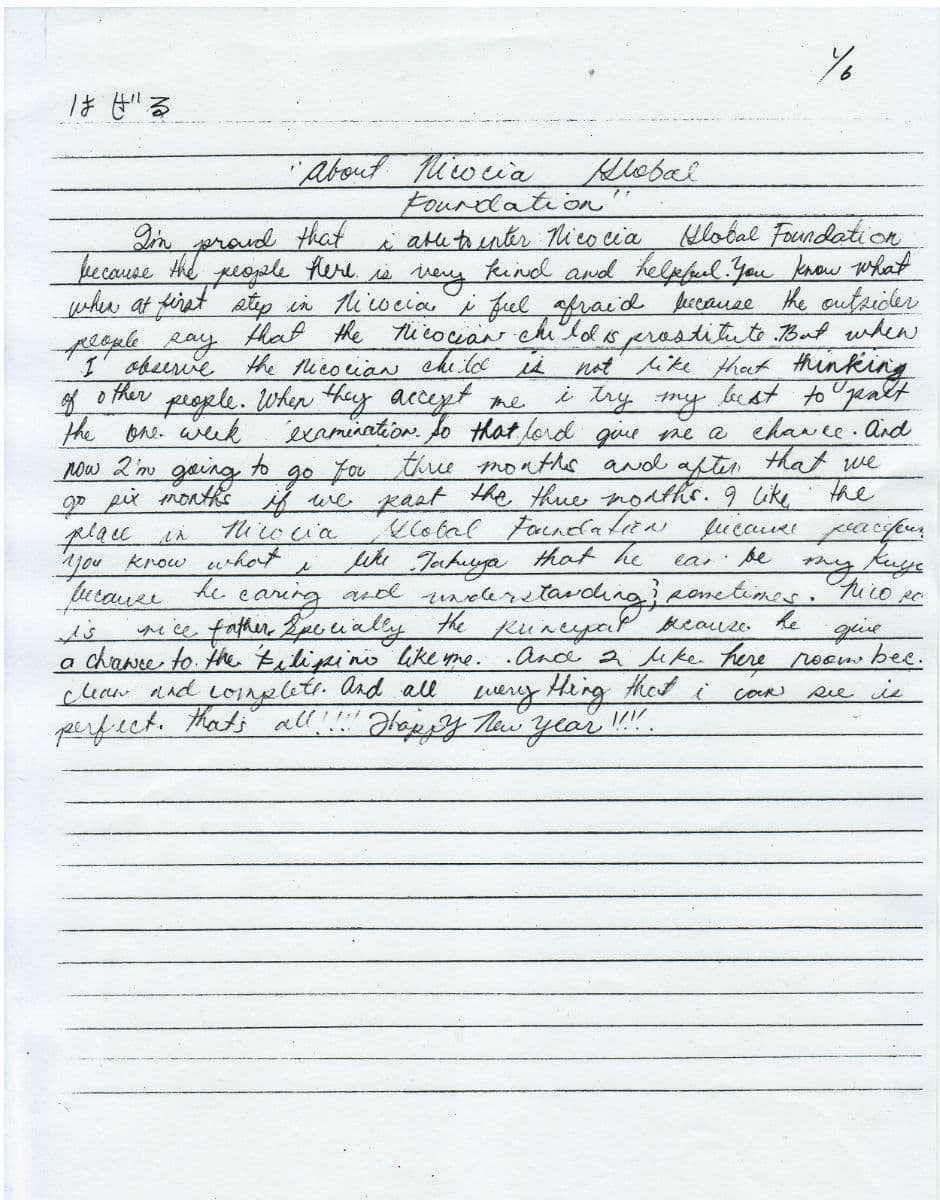 1/6
はぜる
"About Nicocia Global
Foundation"
I'm proud that i able to enter Nicocia Global Foundation
because the people here is very kind and helpful. You know what
when at first step in Nicocia i feel afraid because the outsider
people say that the Nicocian child is prostitute. But when
I observe the Nicocian child is not like that thinking
of other people. When they accept me i try my best to past
the one week examination. So that lord give me a chance. And
now I'm going to go for three months and after that we
go six months if we past the three months. I like the
place in Nicocia Global Foundation because
you know what i like Tatuya that he can be my Kuya
because he caring and understanding; sometimes. Nico
is nice father, Specially the principal because he give
a chance to the Filipino like me. And I like here room bec.
clean and complete. And all every thing that i can see is
perfect. that's all!!!! Happy New year!!!!